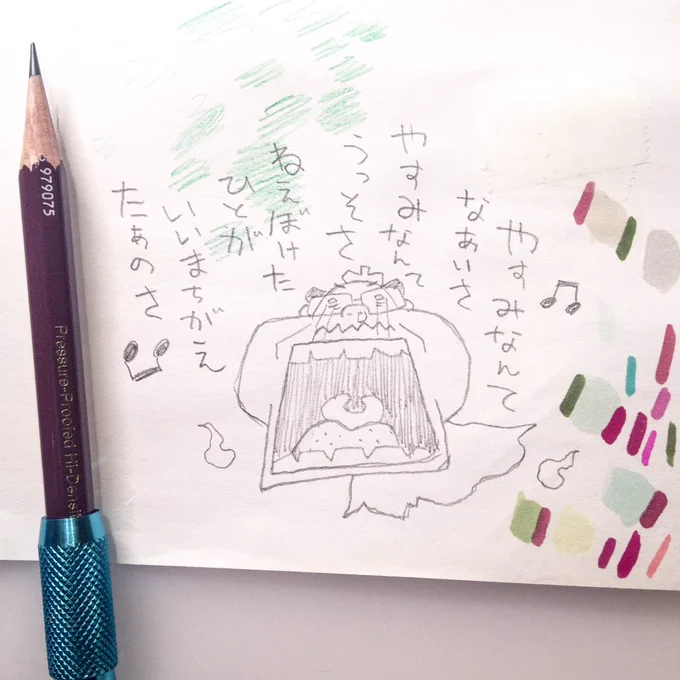 やすみなんて
なあいさ
やすみなんて
うっそさ
ねえぼけた
ひとが
いいまちがえ
たぁのさ
979075
Pressure-Proofed Hi-Densi